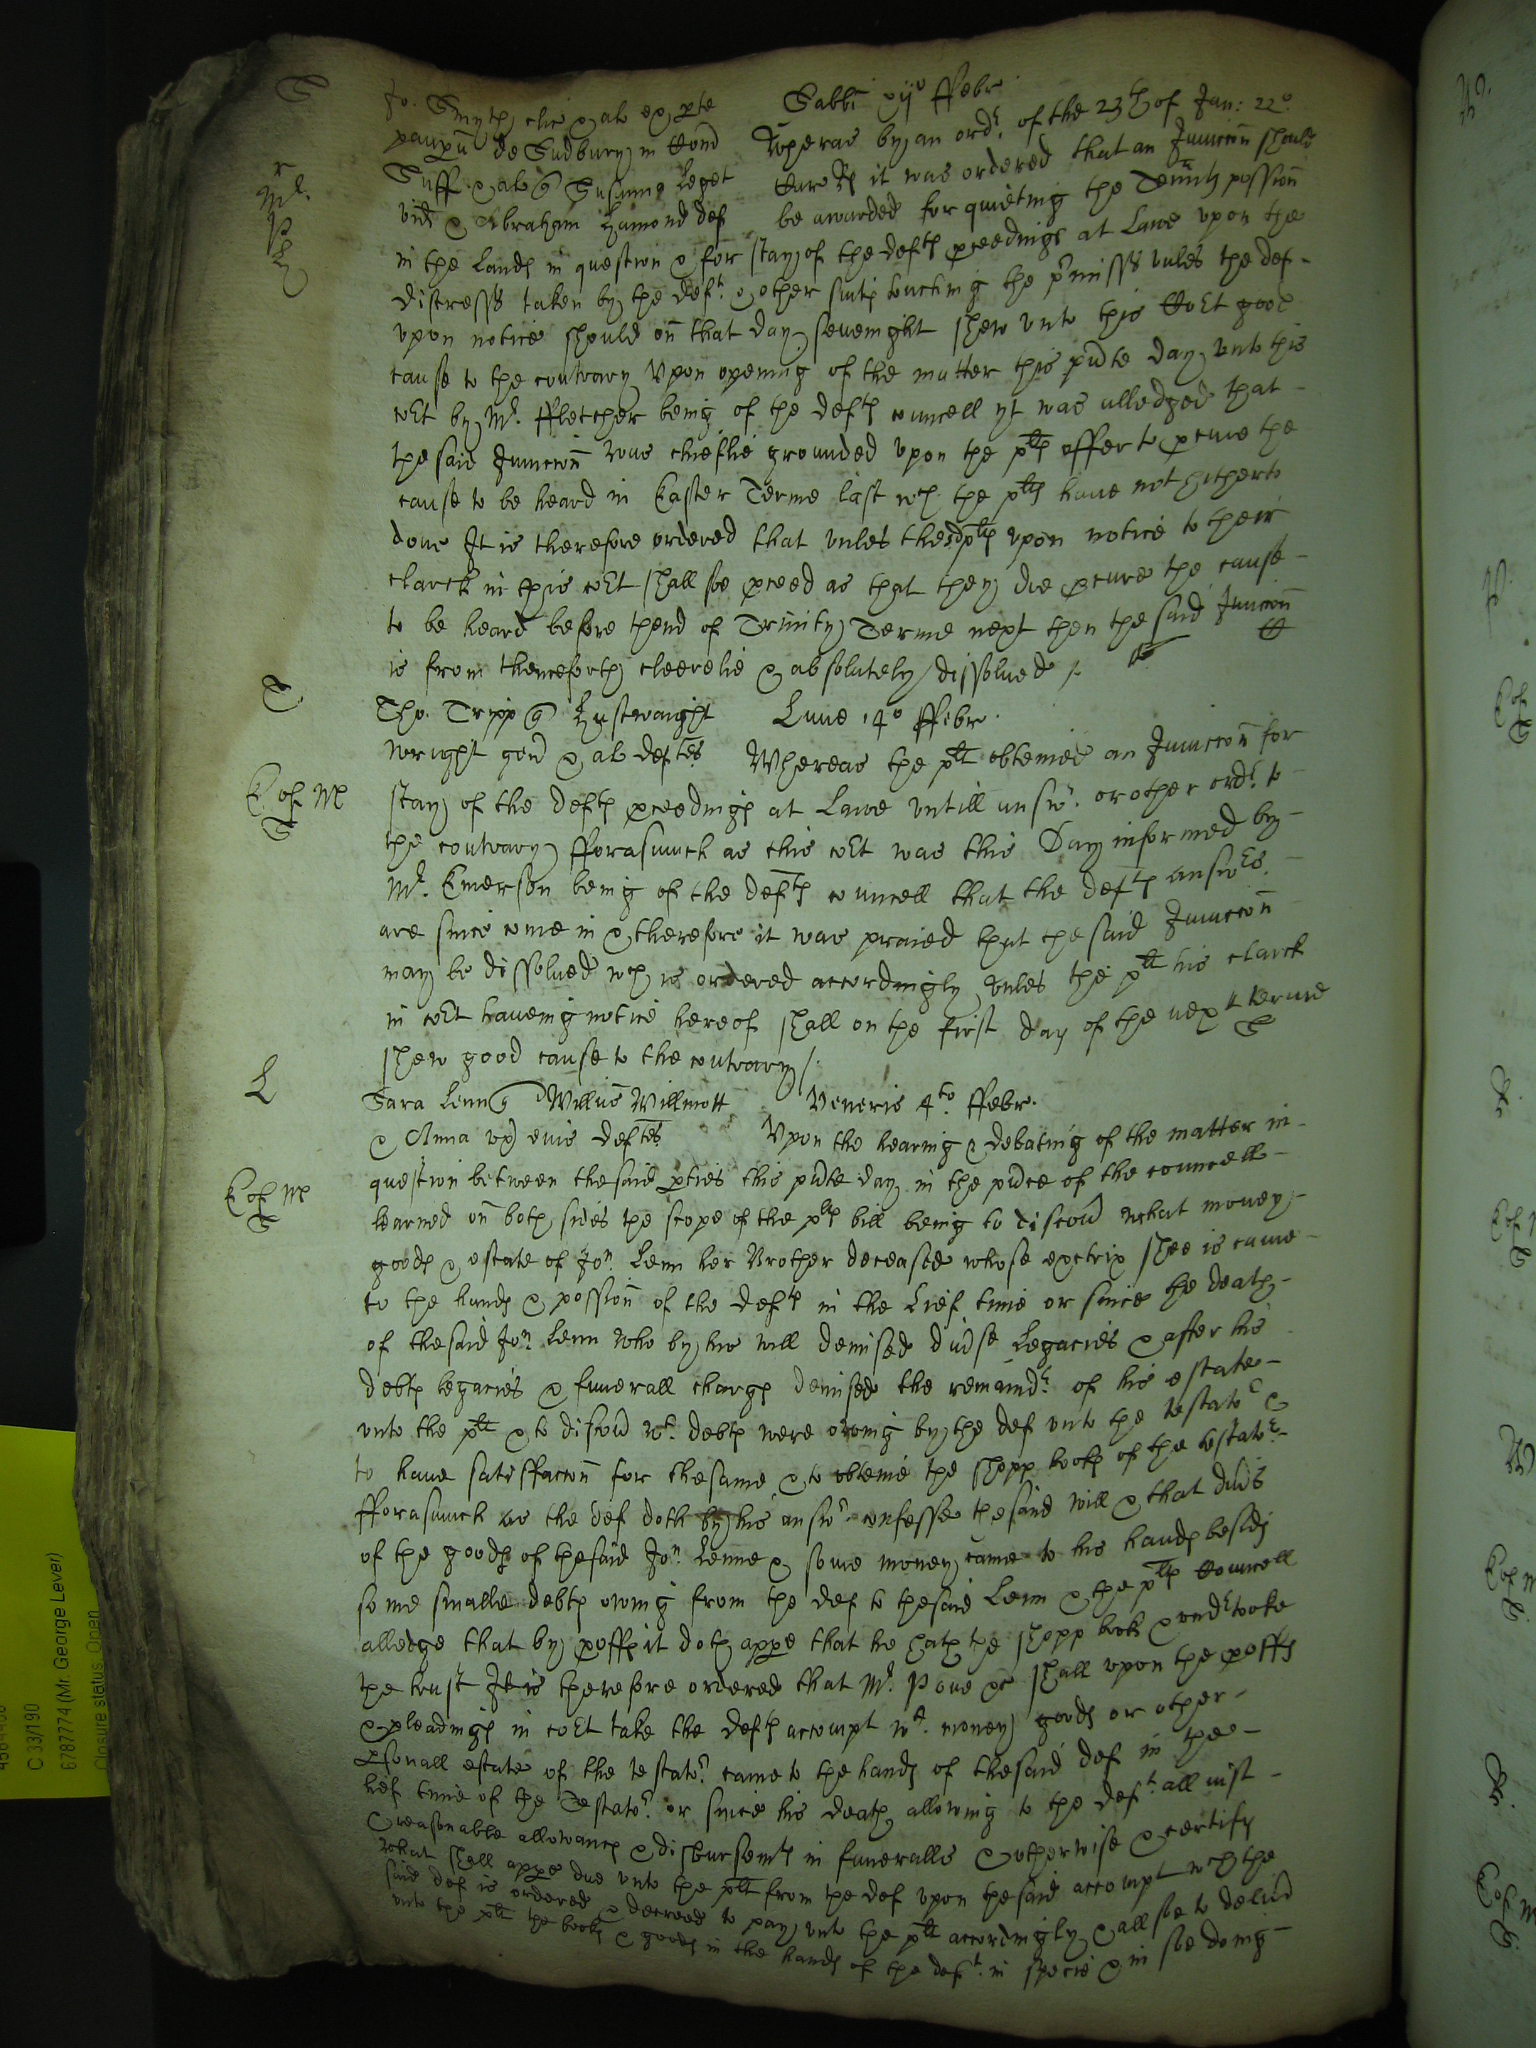 S
Jo. Smyth, clic & al ex pte Sabbi xijº ffebr
paupũ de Sudbury in Com̃ Whereas by an ordr. of the 23th of Jan: 22º
Suff & al Susanna Leget it was ordered that an Junccoñ should
Mr.
vid & Abraham Hamond def be awarded for quieting the possion̄
in the Lands in question & for stay of the defts pceedings at Lawe vpon the
distresses taken by the deft. & other suits touching the p̃misses vnles the def
vpon notice should on that day sevenight shew vnto this Cort good
cause to the contrary Vpon opening of the matter this p̃nte day vnto this
cort by Mr. ffletcher being of the defts councell yt was alledged that
the said Junccoñ was chieflie grounded vpon the plts offer to pcure the
cause to be heard in Easter Terme last wch the plts haue not hitherto
done It is therefore ordered that vnles the sd plts vpon notice to their
clarck in this cort shall soe pceed as that they doe pcure the cause
to be heard before thend of Trinity Terme next then the said Junccoñ
is from thenceforth cleerelie & absolutely dissolued /.
T
Tho. Tripp Lune 14º ffebr.
wright gen̄ & al deftes Whereas the plt obteined an Junccoñ for
stay of the defts pceedings at Lawe vntill answr. or other ordr. to
the contrary fforasmuch as this cort was this Day informed by
Mr. Emerson being of the defts councell that the defts answrs.
are since come in & therefore it was praied that the said Junccoñ
may be dissolued wch is ordered accordingly vnles the plt his clarck
in cort haueing notice hereof shall on the first day of the next terme
shew good cause to the contrary /.
L
Sara Lenn Willus Willmott Veneris 4to. ffebr.
& Anna vx eius deftes Vpon the hearing & debating of the matter in
question between the said pties this p̃nte day in the p̃nce of the councell
learned on both sides the scope of the plts bill being to discoũ what money
goods & estate of Jon. Lenn her Brother deceased whose exctrix shee is came
to the hands & possion̄ of the defts in the Lief time or since the death
of the said Jon. Lenn who by his will deuised diũse Legacies & after his
debts legacies & funerall charges deuised the remaindr. of his estate
vnto the plt & to discoũ wt. debts were oweing by the def vnto the testator &
to haue satisffaccoñ for the same & to obteine the shopp books of the testator
fforasmuch as the def doth by his answr confesse the said will & that diũs
of the goods of the said Jon. Lenne & some money came to his hands besids
some smalle debts owing from the def to the said Lenn & the plts Councell
alledge that by proffs it doth appe that he hath the shopp book & vndrtooke
the trust It is therefore ordered that Mr. Page &c shall vpon the proffs
& pleadings in cort take the defts accompt wt. money goods or other
psonall estate of the testator. came to the hands of the said def in the
lief time of the Testator. or since his death allowing to the deft. all iust
& reasonable allowances & disbursemts in funeralls & otherwise & certify
what shall appe due vnto the plt from the def vpon the said accompt wch the
said def is ordered & decreed to pay vnto the plt accordingly & allsoe to deliũ
vnto the plt the books & goods in the hands of the deft. in specie & in soe doing
C 33/190
6787774 (Mr. George Lever)
Closure status: Open